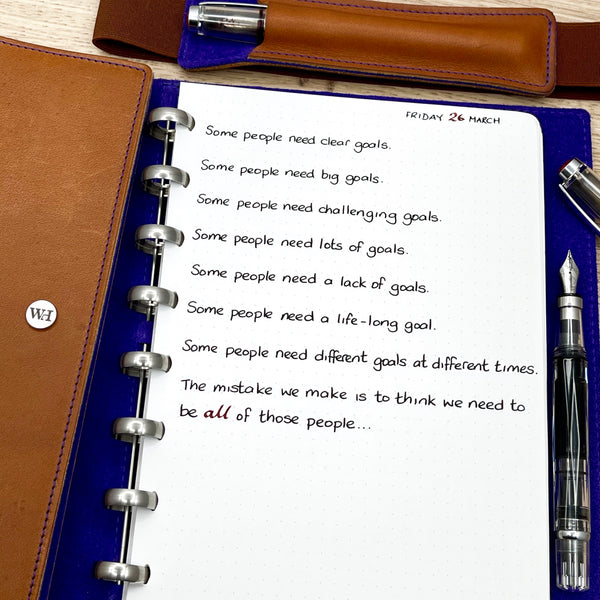 FRIDAY 26 MARCH
Some people need clear goals.
Some people need big goals.
Some people need challenging goals.
Some people need lots of goals.
Some people need a lack of goals.
Some people need a life-long goal.
Some people need different goals at different times.
The mistake we make is to think we need to
be all of those people...
WH